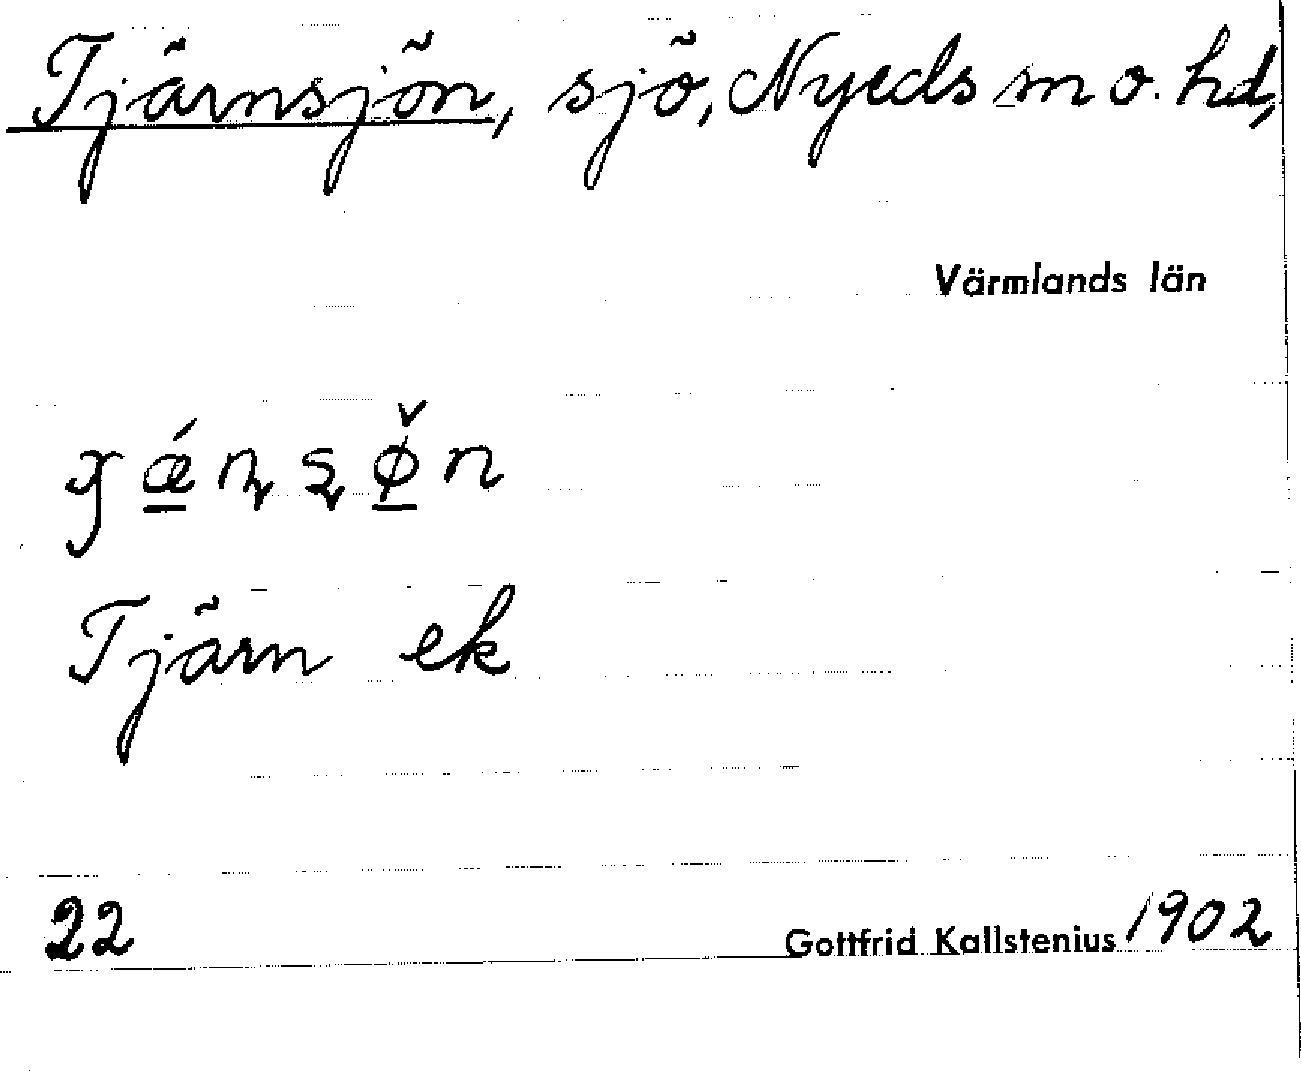 Tjärnsjön, sjö, Nyeds sn o. hd,
Värmlands län
Tjärn ek
22 Gottfrid Kallstenius 1902